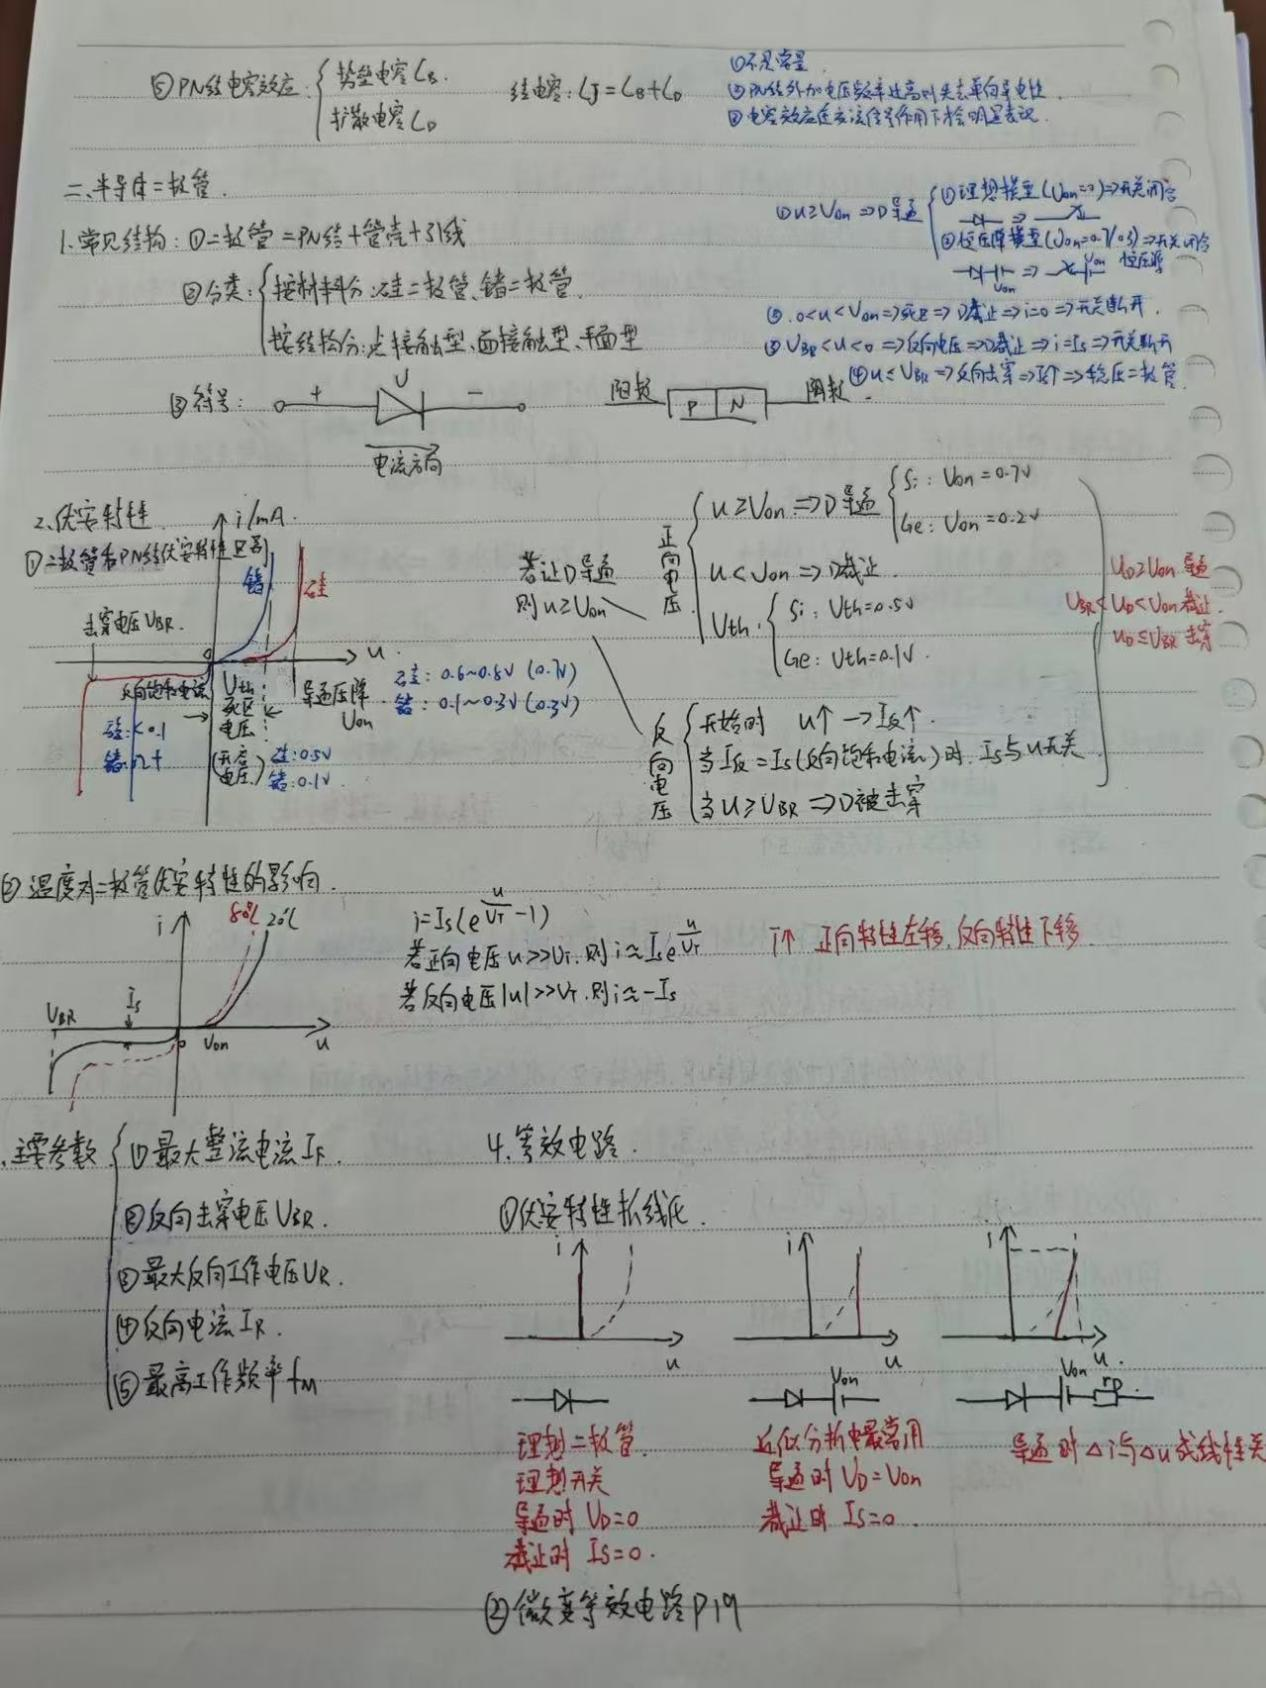 ⑤PN结电容效应: 势垒电容CB.
扩散电容CD
结电容: CJ=CB+CD
①不是常量
②PN结外加电压频率过高时失去单向导电性.
③电容效应在交流信号作用下才会明显表现.
二、半导体二极管.
1.常见结构: ①二极管=PN结+管壳+引线
②分类: 按材料分:硅二极管、锗二极管.
按结构分:点接触型、面接触型、平面型
③符号: + U −
电流方向
阳极 P N 阴极
①u≥Von⇒D导通
①理想模型(Von=0)⇒开关闭合
②恒压降模型(Von=0.7/0.3)⇒开关闭合
Von Von 恒压源
②.0<u<Von⇒死区⇒D截止⇒i=0⇒开关断开.
③UBR<u<0⇒反向电压⇒D截止⇒i=Is⇒开关断开
④u≤UBR⇒反向击穿⇒I↑⇒稳压二极管.
2.伏安特性
①二极管和PN结伏安特性区别
i/mA
锗 硅
击穿电压UBR.
0 u
反向饱和电流
硅:<0.1
锗:几十
Uth:
死区
电压
(开启
电压)
硅:0.5V
锗:0.1V
导通压降
Von
硅: 0.6~0.8V (0.7V)
锗: 0.1~0.3V (0.3V)
若让D导通
则u≥Von
正向电压
u≥Von⇒D导通 Si: Von=0.7V
Ge: Von=0.2V
u<Von⇒D截止.
Uth: Si: Uth=0.5V
Ge: Uth=0.1V.
反向电压
开始时 u↑→I反↑.
当I反=Is(反向饱和电流)时. Is与u无关
当u≥UBR⇒D被击穿
UD≥Von 导通
UBR<UD<Von 截止.
UD≤UBR 击穿
②温度对二极管伏安特性的影响.
i 80℃ 20℃
UBR Is
0 Von u
i=Is(e^(u/UT)-1)
若正向电压u>>UT.则i≈Is e^(u/UT)
若反向电压|u|>>UT.则i≈-Is
T↑ 正向特性左移,反向特性下移.
.主要参数 ①最大整流电流IF.
②反向击穿电压UBR.
③最大反向工作电压UR.
④反向电流IR.
⑤最高工作频率fM
4.等效电路.
①伏安特性折线化.
i u
i u
i u.
Von
Von rD
理想二极管.
理想开关
导通时 UD=0
截止时 Is=0.
近似分析中最常用
导通时 UD=Von
截止时 Is=0.
导通时△i与△u成线性关
②微变等效电路P19